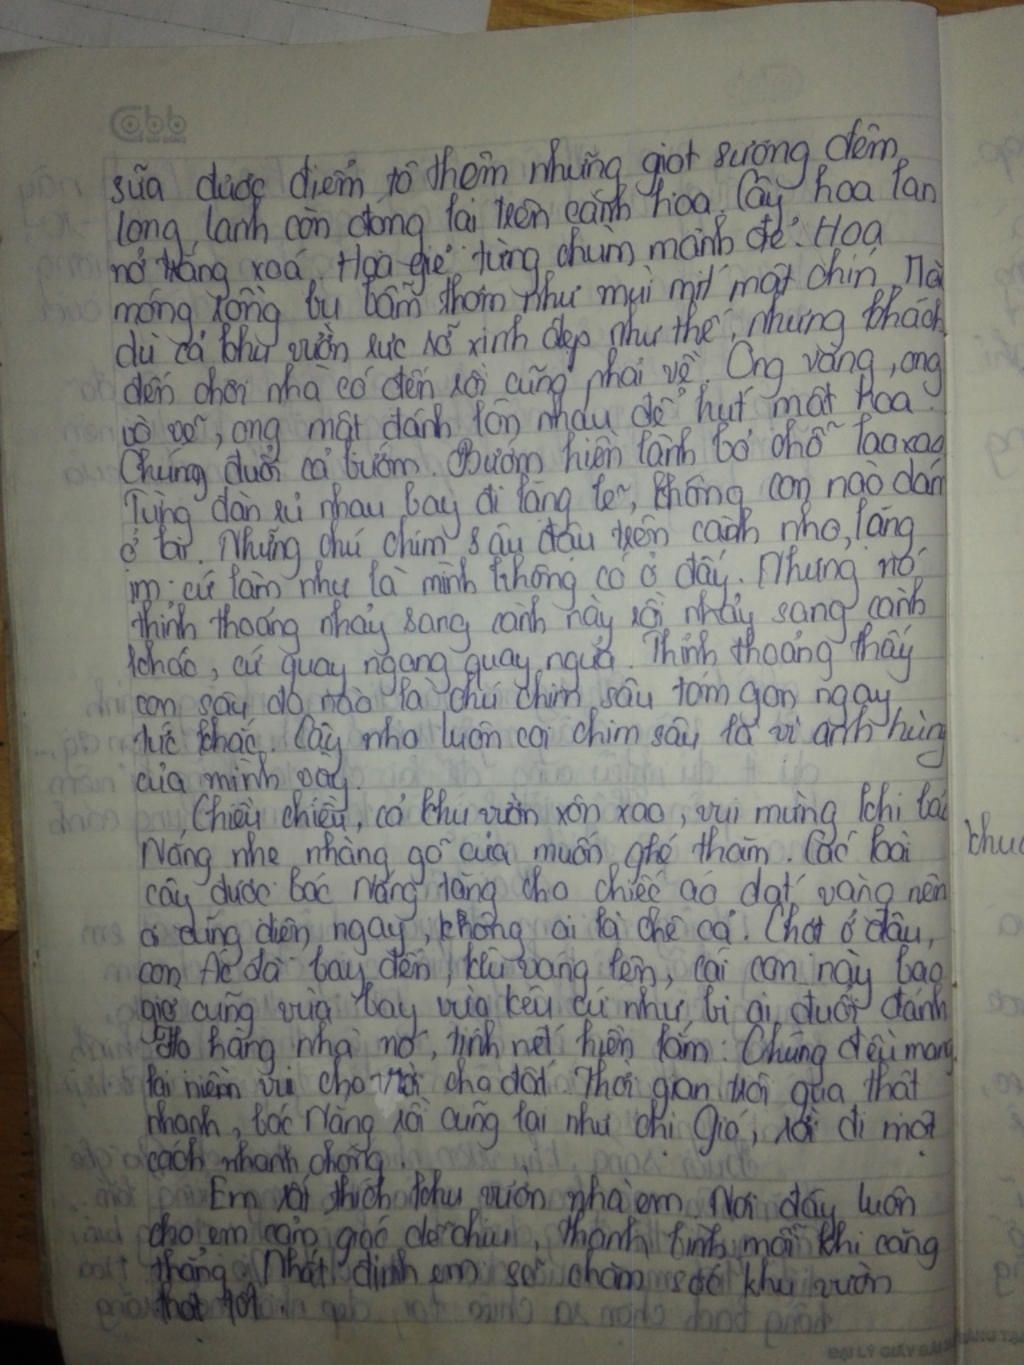 Cabb
sữa được điểm tô thêm những giọt sương đêm
long lanh còn đọng lại trên cánh hoa. Cây hoa lan
nở trắng xoá. Hoa giẻ từng chùm mảnh dẻ. Hoa
móng rồng bụ bẫm thơm như mùi mít mật chín. Mặc
dù cả khu vườn rực rỡ xinh đẹp như thế, nhưng khách
đến chơi nhà có đến rồi cũng phải về. Ong vàng, ong
vò vẽ, ong mật đánh lộn nhau để hút mật hoa.
Chúng đuổi cả bướm. Bướm hiền lành bỏ chỗ lao xao
Từng đàn rủ nhau bay đi lặng lẽ, không con nào dám
ở lại. Những chú chim sâu đậu trên cành nho, lặng
im cứ làm như là mình không có ở đấy. Nhưng nó
thỉnh thoảng nhảy sang cành này rồi nhảy sang cành
khác, cứ quay ngang quay ngửa. Thỉnh thoảng thấy
con sâu đo nào là chú chim sâu tóm gọn ngay
tức khắc. Cây nho luôn coi chim sâu là vị anh hùng
của mình vậy.
Chiều chiều, cả khu vườn xôn xao, vui mừng khi bác
Nắng nhẹ nhàng gõ cửa muốn ghé thăm. Các loài
cây được bác Nắng tặng cho chiếc áo dát vàng nên
ai cũng diện ngay, không ai là chê cả. Chợt ở đâu,
con ác đã bay đến, kêu vang lên, cái con này bao
giờ cũng vừa bay vừa kêu cứ như bị ai đuổi đánh
Họ hàng nhà nó, tính nết hiền lắm. Chúng đều mang
lại niềm vui cho trời cho đất. Thời gian trôi qua thật
nhanh, bác Nắng rồi cũng lại như chị Gió, rời đi một
cách nhanh chóng.
Em rất thích khu vườn nhà em. Nơi đây luôn
cho em cảm giác dễ chịu, thanh tịnh mỗi khi căng
thẳng. Nhất định em sẽ chăm sóc khu vườn
thật tốt.